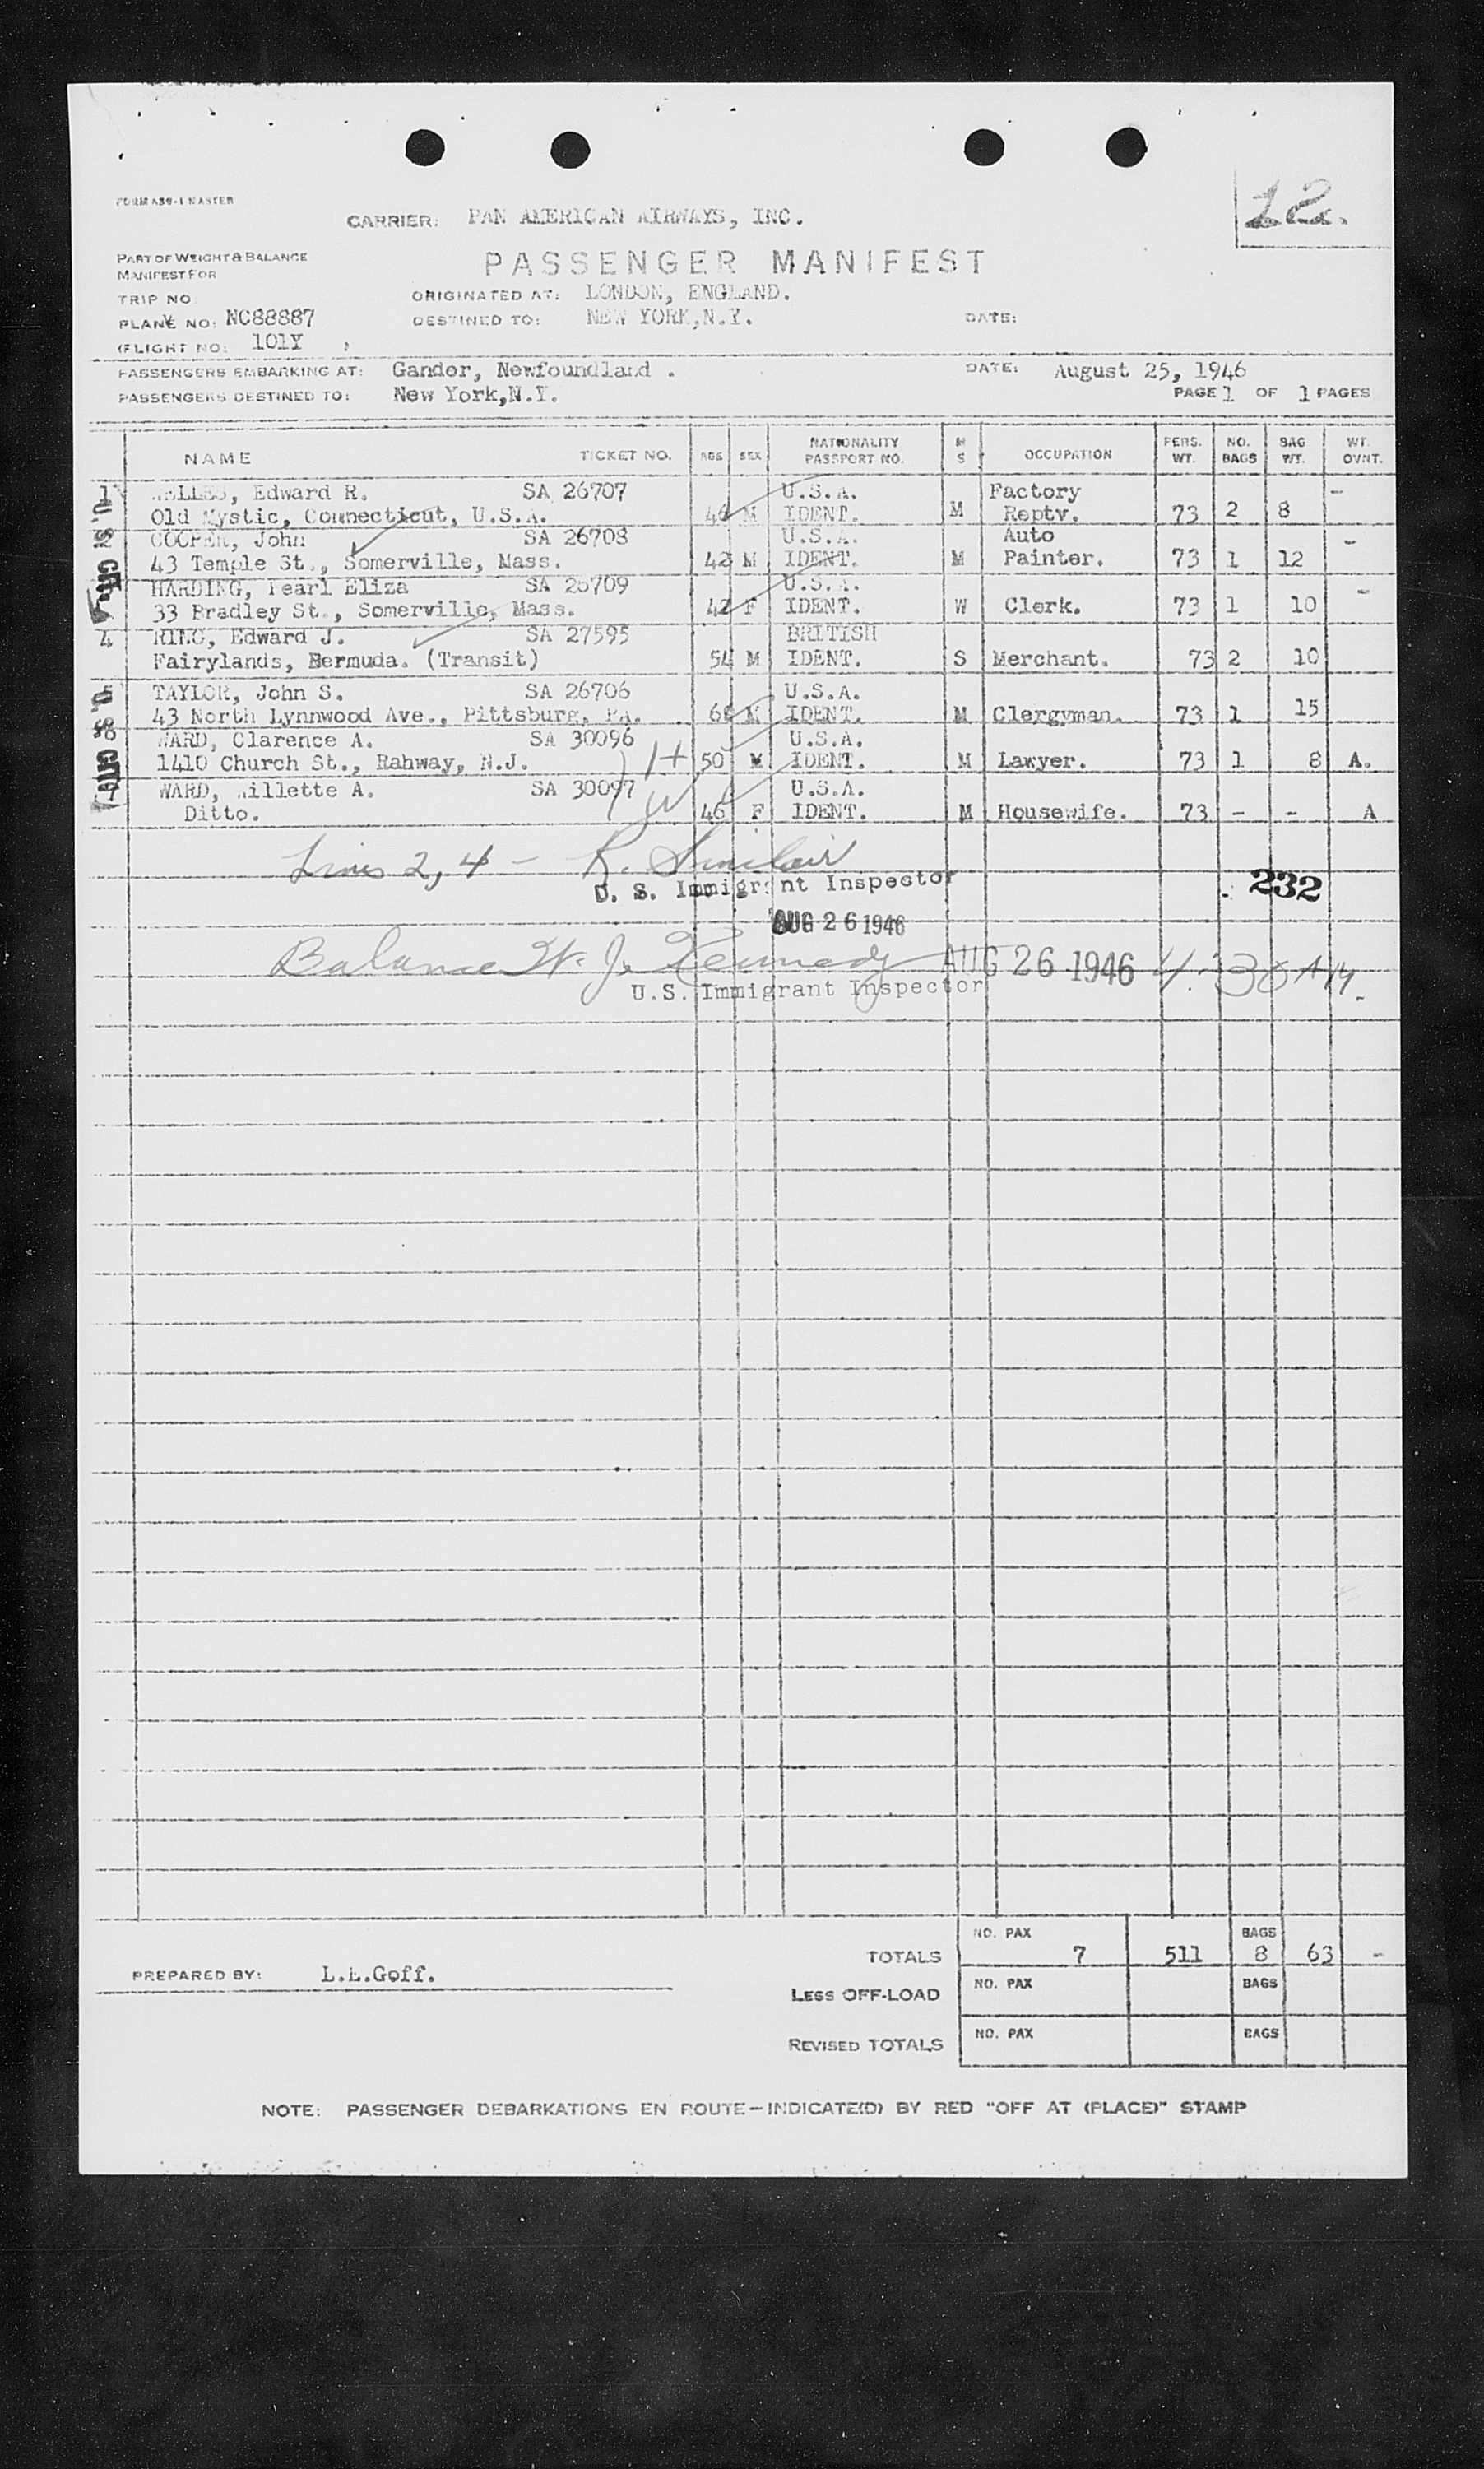 FORM A39-1 MASTER
12.
CARRIER: PAN AMERICAN AIRWAYS, INC.
PART OF WEIGHT & BALANCE
MANIFEST FOR
PASSENGER MANIFEST
TRIP NO:
ORIGINATED AT: LONDON, ENGLAND.
PLANE NO: NC88887
DESTINED TO: NEW YORK, N.Y. DATE:
(FLIGHT NO: 101Y )
PASSENGERS EMBARKING AT: Gander, Newfoundland . DATE: August 25, 1946
PASSENGERS DESTINED TO: New York, N.Y. PAGE 1 OF 1 PAGES
NAME TICKET NO. AGE SEX NATIONALITY PASSPORT NO. M S OCCUPATION PERS. WT. NO. BAGS BAG WT. WT. OVNT.
1 WELLES, Edward R. SA 26707 U.S.A. Factory -
Old Mystic, Connecticut, U.S.A. 46 M IDENT. M Reptv. 73 2 8
COOPER, John SA 26708 U.S.A. Auto -
43 Temple St., Somerville, Mass. 42 M IDENT. M Painter. 73 1 12
HARDING, Pearl Eliza SA 26709 U.S.A. -
33 Bradley St., Somerville, Mass. 42 F IDENT. W Clerk. 73 1 10
4 Edward J. SA 27595 BRITISH
Fairylands, Bermuda. (Transit) 54 M IDENT. S Merchant. 73 2 10
TAYLOR, John S. SA 26706 U.S.A.
43 North Lynnwood Ave., Pittsburg, PA. M IDENT. M Clergyman. 73 1 15
WARD, Clarence A. SA 30096 U.S.A.
1410 Church St., Rahway, N.J. 50 M IDENT. M Lawyer. 73 1 8 A.
WARD, Willette A. SA 30097 U.S.A.
Ditto. 46 F IDENT. M Housewife. 73 - - A
U.S. CIT.
U.S. CIT.
Lines 2, 4 - R. Sinclair
U. S. Immigrant Inspector 232
AUG 26 1946
Balance W. J. Kennedy AUG 26 1946 4:30 AM.
U.S. Immigrant Inspector
TOTALS NO. PAX 7 511 BAGS 8 63 -
PREPARED BY: L.L.Goff.
LESS OFF-LOAD NO. PAX BAGS
REVISED TOTALS NO. PAX BAGS
NOTE: PASSENGER DEBARKATIONS EN ROUTE—INDICATE(D) BY RED "OFF AT (PLACE)" STAMP